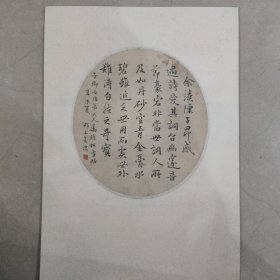 余讀陳子昂感
遇詩愛其詞旨幽邃音
節豪宕非當世詞人所
及如丹砂空青金膏水
碧雖近乏世用而實物外
難得自然之奇寶